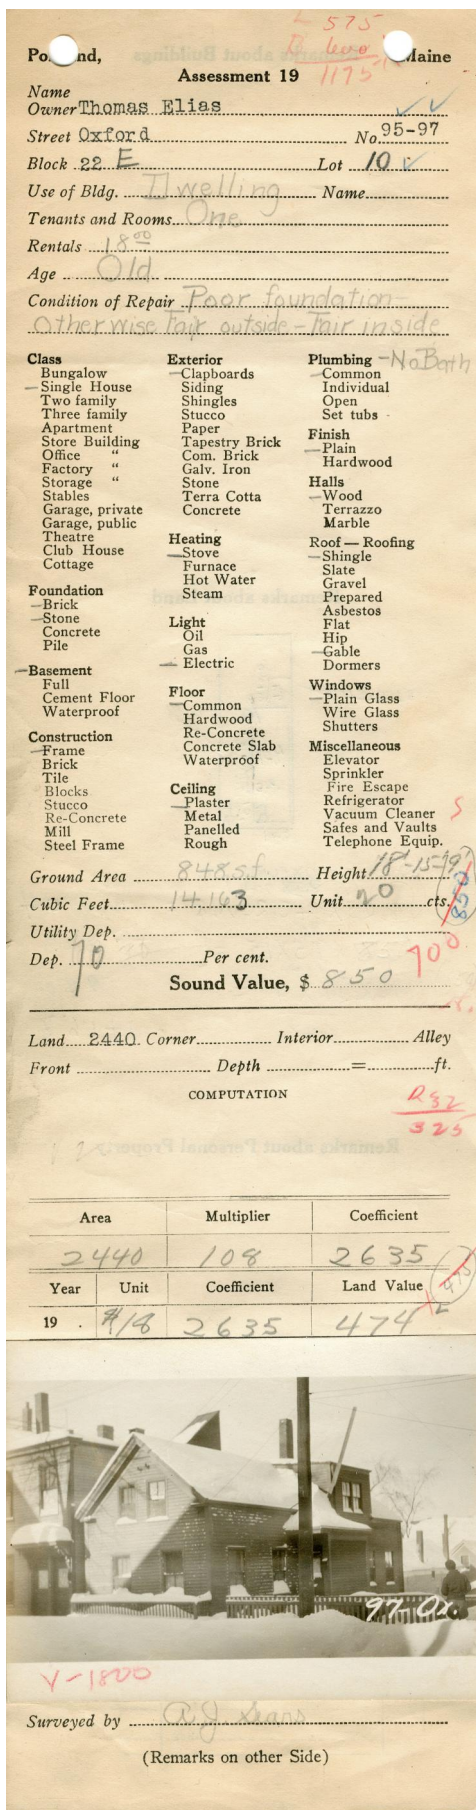 L 575
B 600
1175
Portland, Maine
Assessment 19
Name
Owner Thomas Elias
Street Oxford No. 95-97
Block 22 E Lot 10
Use of Bldg. Dwelling Name
Tenants and Rooms One
Rentals 18.00
Age Old
Condition of Repair Poor foundation-
Otherwise Fair outside - Fair inside
Class
Bungalow
Single House
Two family
Three family
Apartment
Store Building
Office "
Factory "
Storage "
Stables
Garage, private
Garage, public
Theatre
Club House
Cottage
Foundation
Brick
Stone
Concrete
Pile
Basement
Full
Cement Floor
Waterproof
Construction
Frame
Brick
Tile
Blocks
Stucco
Re-Concrete
Mill
Steel Frame
Exterior
Clapboards
Siding
Shingles
Stucco
Paper
Tapestry Brick
Com. Brick
Galv. Iron
Stone
Terra Cotta
Concrete
Heating
Stove
Furnace
Hot Water
Steam
Light
Oil
Gas
Electric
Floor
Common
Hardwood
Re-Concrete
Concrete Slab
Waterproof
Ceiling
Plaster
Metal
Panelled
Rough
Plumbing - No Bath
Common
Individual
Open
Set tubs
Finish
Plain
Hardwood
Halls
Wood
Terrazzo
Marble
Roof — Roofing
Shingle
Slate
Gravel
Prepared
Asbestos
Flat
Hip
Gable
Dormers
Windows
Plain Glass
Wire Glass
Shutters
Miscellaneous
Elevator
Sprinkler
Fire Escape
Refrigerator
Vacuum Cleaner
Safes and Vaults
Telephone Equip.
Ground Area 848 s.f. Height 18'-15'-9'
Cubic Feet 14,163 Unit 20 cts.
850
Utility Dep.
Dep. 70 Per cent. 700
Sound Value, $ 850
Land 2440 Corner Interior Alley
Front Depth = ft.
COMPUTATION
R32
325
Area Multiplier Coefficient
2440 108 2635
Year Unit Coefficient Land Value
475
19 . 18 2635 474
97-Ox.
V-1800
Surveyed by A.J. Sears
(Remarks on other Side)